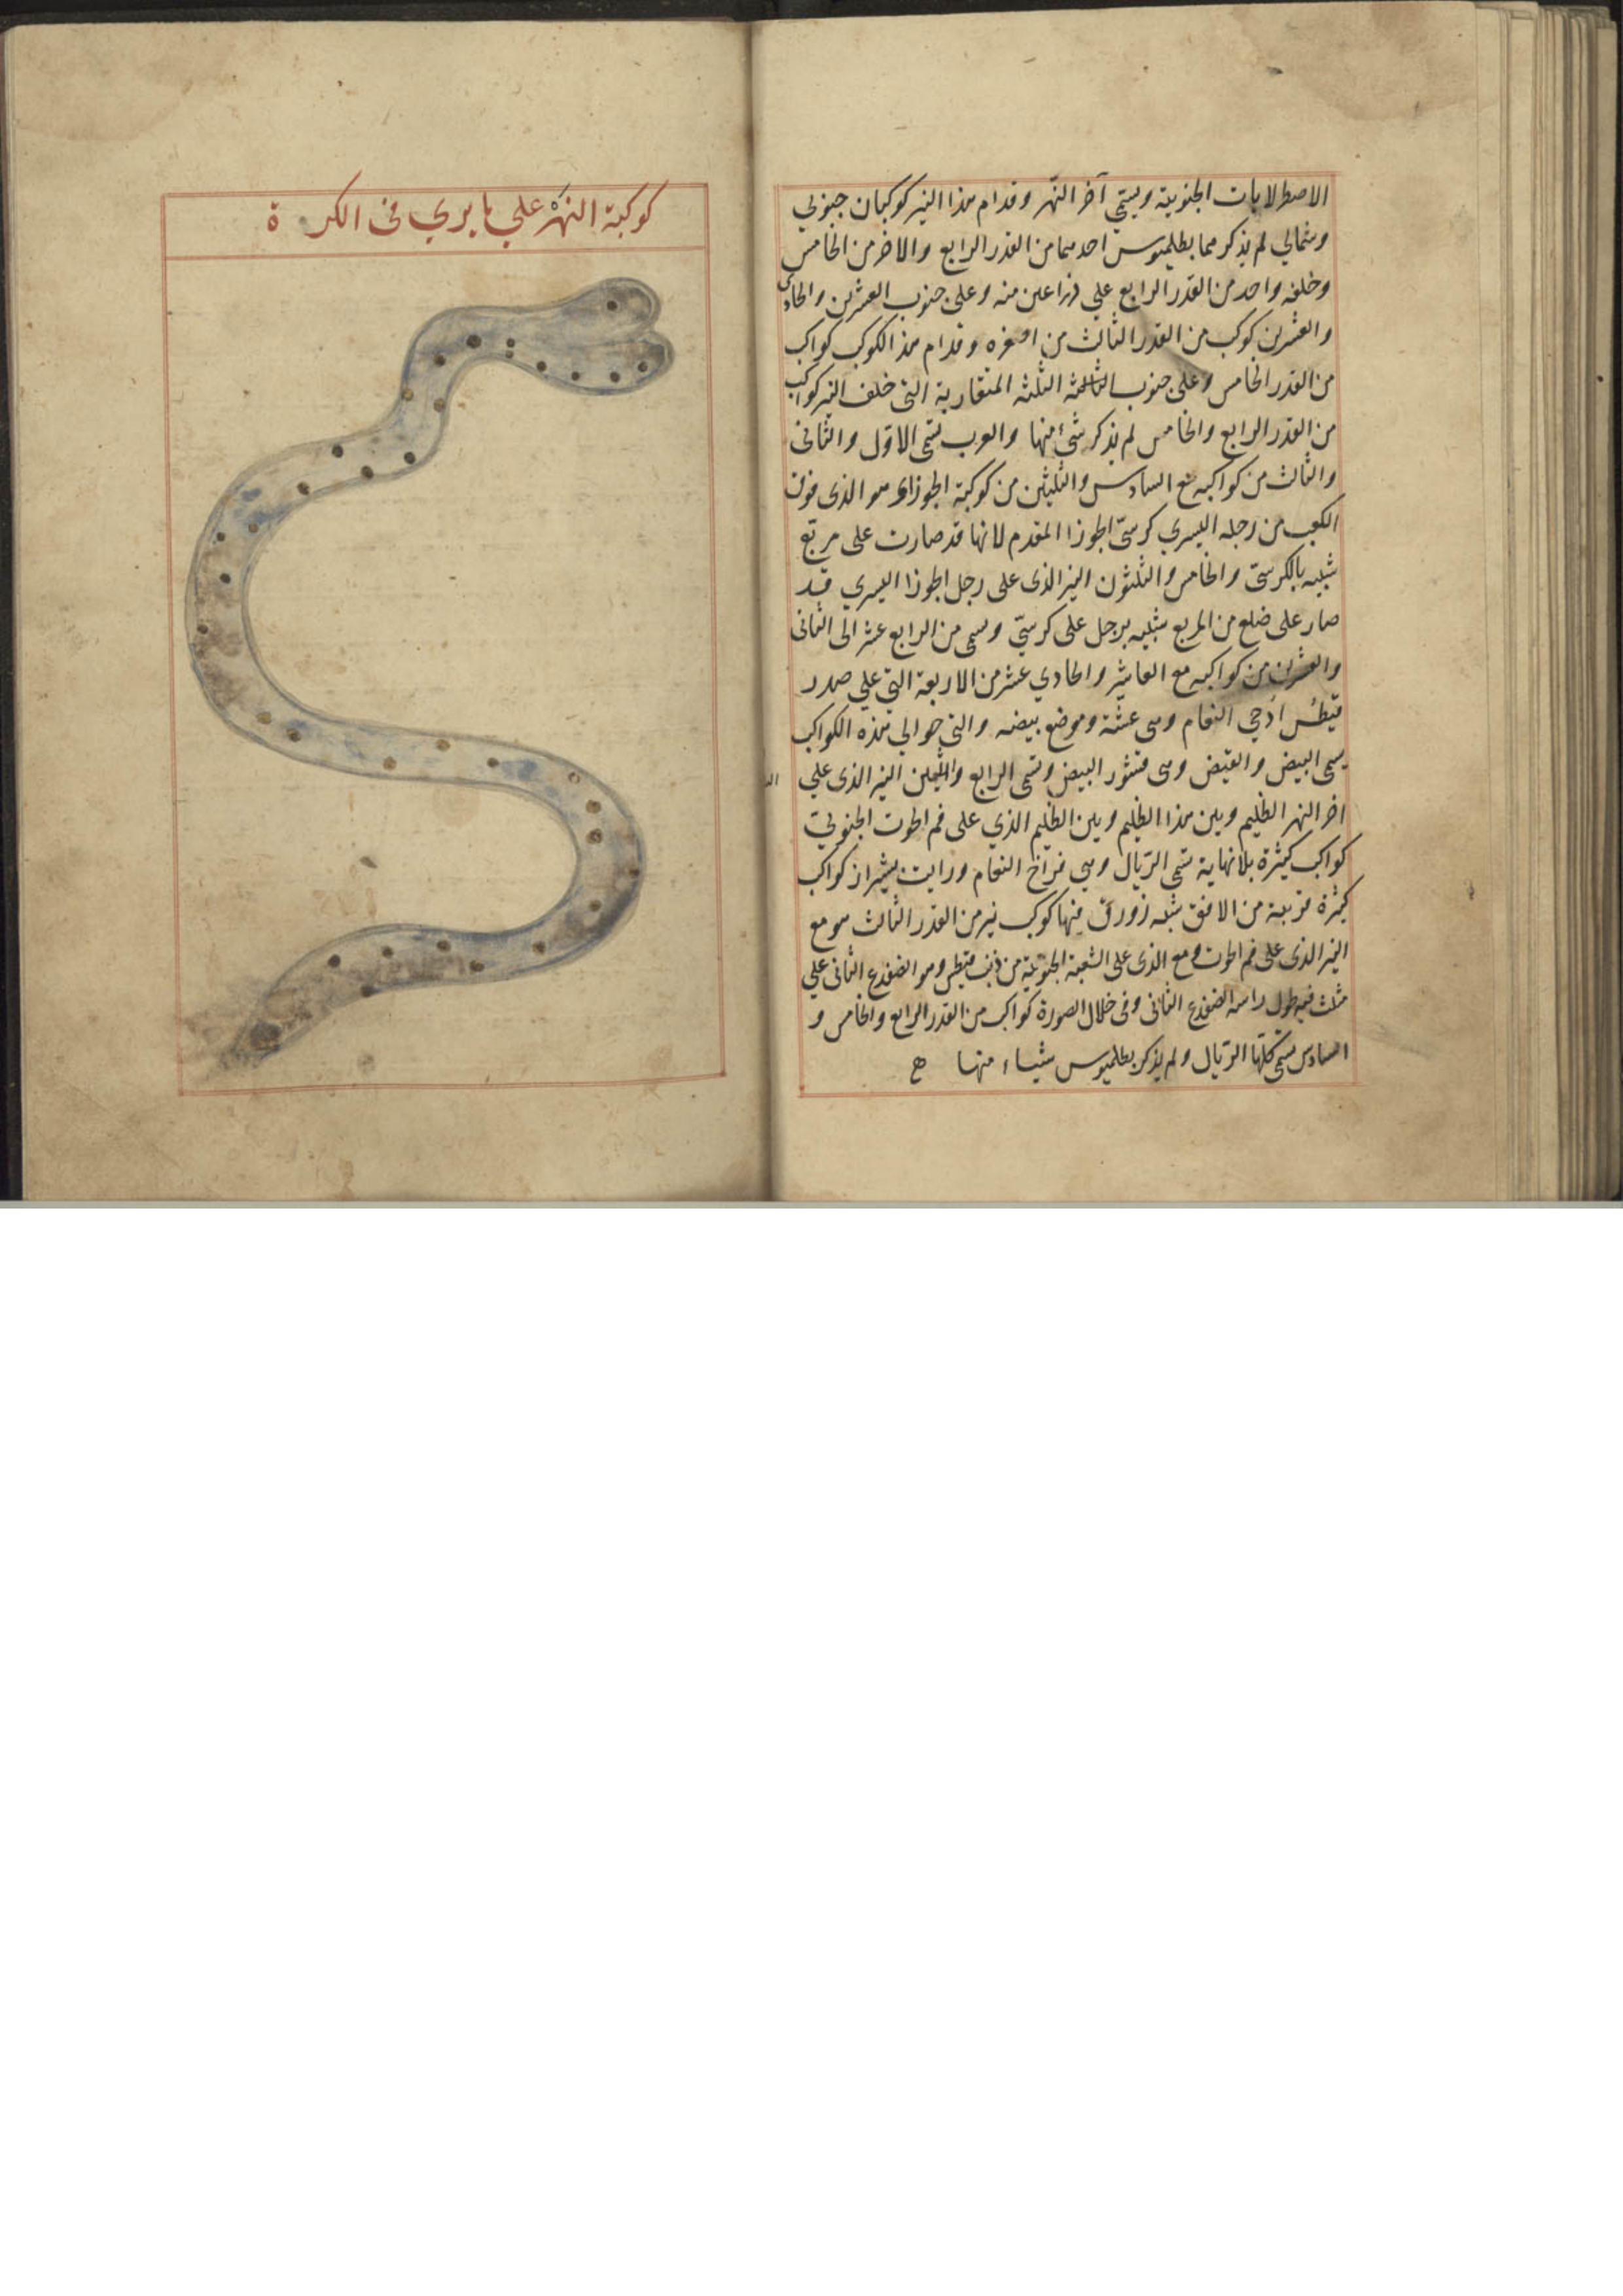 الاصطرلابات الجنوبية ويسمي آخر النهر وقدام هذا النير كوكبان جنوبي
وشمالي لم يذكرهما بطلميوس احدهما من القدر الرابع والاخر من الخامس
وخلفه واحد من القدر الرابع علي ذراعين منه وعلى جنوب العشرين والحادي
والعشرين كوكب من القدر الثالث من اصغره وقدام هذا الكوكب كواكب
من القدر الخامس وعلى جنوب الثلثة المتقاربة التى خلف النير كواكب
من القدر الرابع والخامس لم يذكر شئ منها والعرب تسمى الاول والثانى
والثالث من كواكبه مع السادس والثلثين من كوكبة الجوزاء وهو الذى فوق
الكعب من رجله اليسري كرسى الجوزا المقدم لانها قد صارت على مربع
شبيه بالكرسى والخامس والثلثون النير الذى على رجل الجوزا اليسري قد
صار على ضلع من المربع شبيه برجل على كرسى وسمى من الرابع عشر الى الثانى
والعشرين من كواكبه مع العاشر والحادي عشر من الاربعة التي علي صدر
قيطس ادحي النعام وهى عشه وموضع بيضه والتى حوالي هذه الكواكب
يسمى البيض والقيض وهى قشور البيض وتسمى الرابع والثلثين النير الذى علي
اخر النهر الظليم وبين هذا الظليم وبين الظليم الذي على فم الحوت الجنوبى
كواكب كثيرة بلا نهاية تسمى الريال وهي فراخ النعام ورايت بشيراز كواكب
كثيرة قريبة من الافق شبه زورق فيها كوكب نير من القدر الثالث هو مع
النير الذى على فم الحوت ومع الذى على الشعبة الجنوبية من ذنب قيطس وهو الضفدع الثانى علي
مثلث فيه طول راسه الضفدع الثانى وفى خلال الصورة كواكب من القدر الرابع والخامس و
السادس تسمى كلها الريال ولم يذكر بطلميوس شياء منها
كوكبة النهر علي ما يري فى الكرة